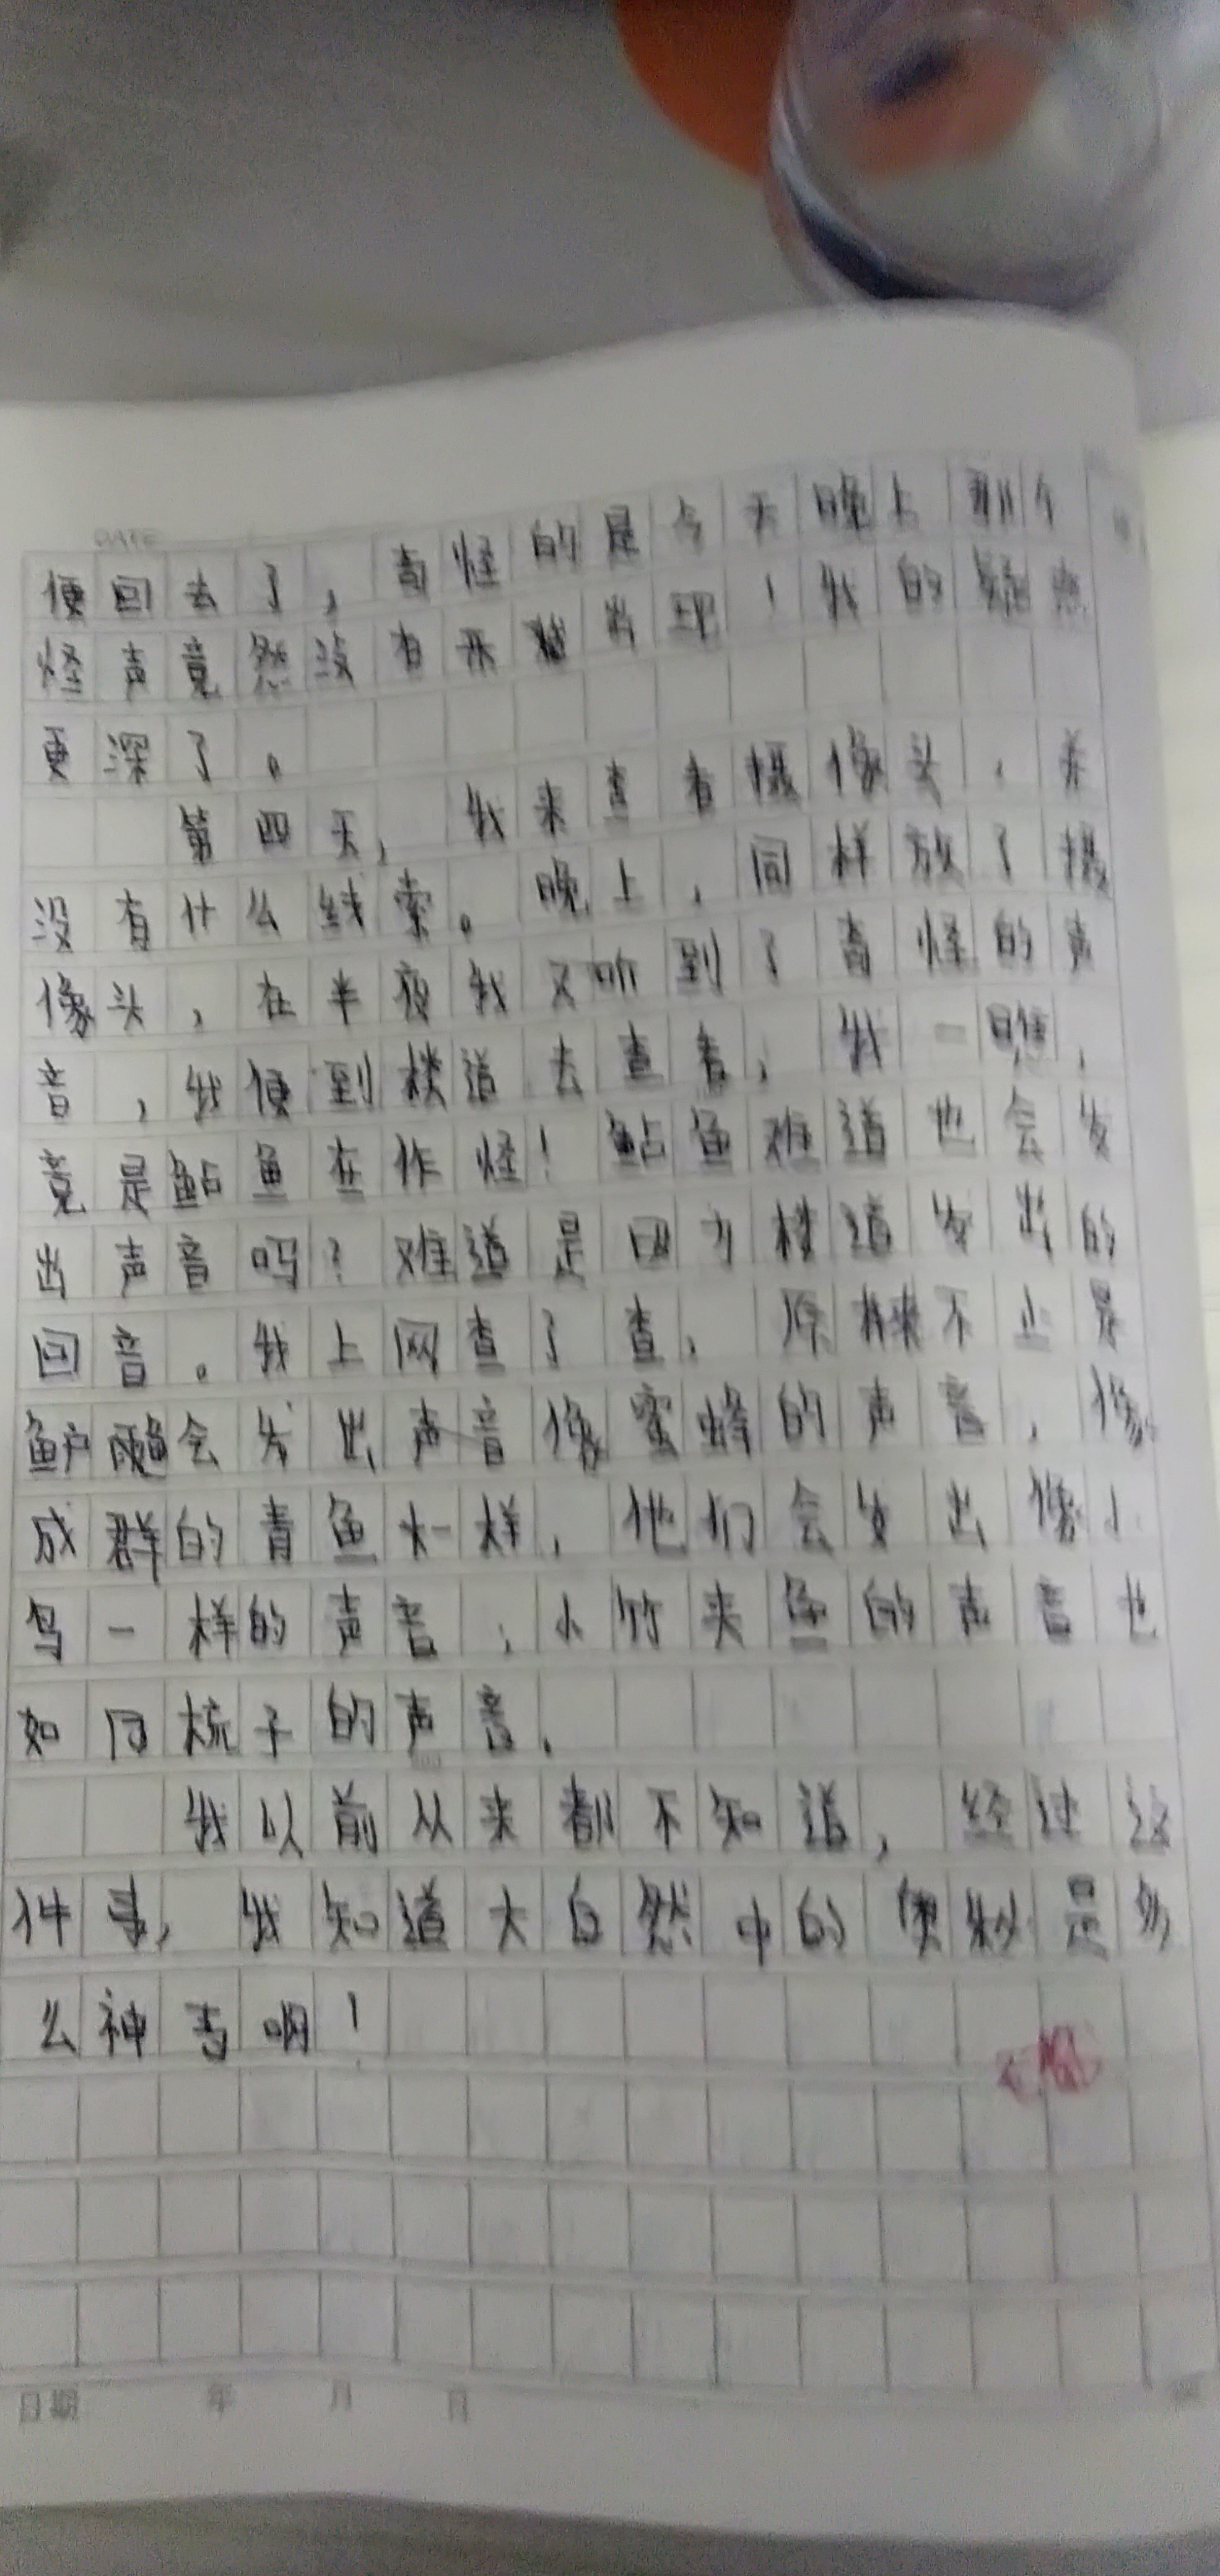 DATE
便回去了，奇怪的是今天晚上那个
怪声竟然没有再出现！我的疑惑
更深了。
第四天，我来查看摄像头，并
没有什么线索。晚上，同样放了摄
像头，在半夜我又听到了奇怪的声
音，我便到楼道去查看，我一瞧，
竟是鲇鱼在作怪！鲇鱼难道也会发
出声音吗？难道是因为楼道发出的
回音。我上网查了查，原来不止是
会发出声音像蜜蜂的声音，像
成群的青鱼一样，他们会发出像小
鸟一样的声音，小竹夹鱼的声音也
如同梳子的声音。
我以前从来都不知道，经过这
件事，我知道大自然中的奥秘是多
么神奇啊！
日期 年 月 日